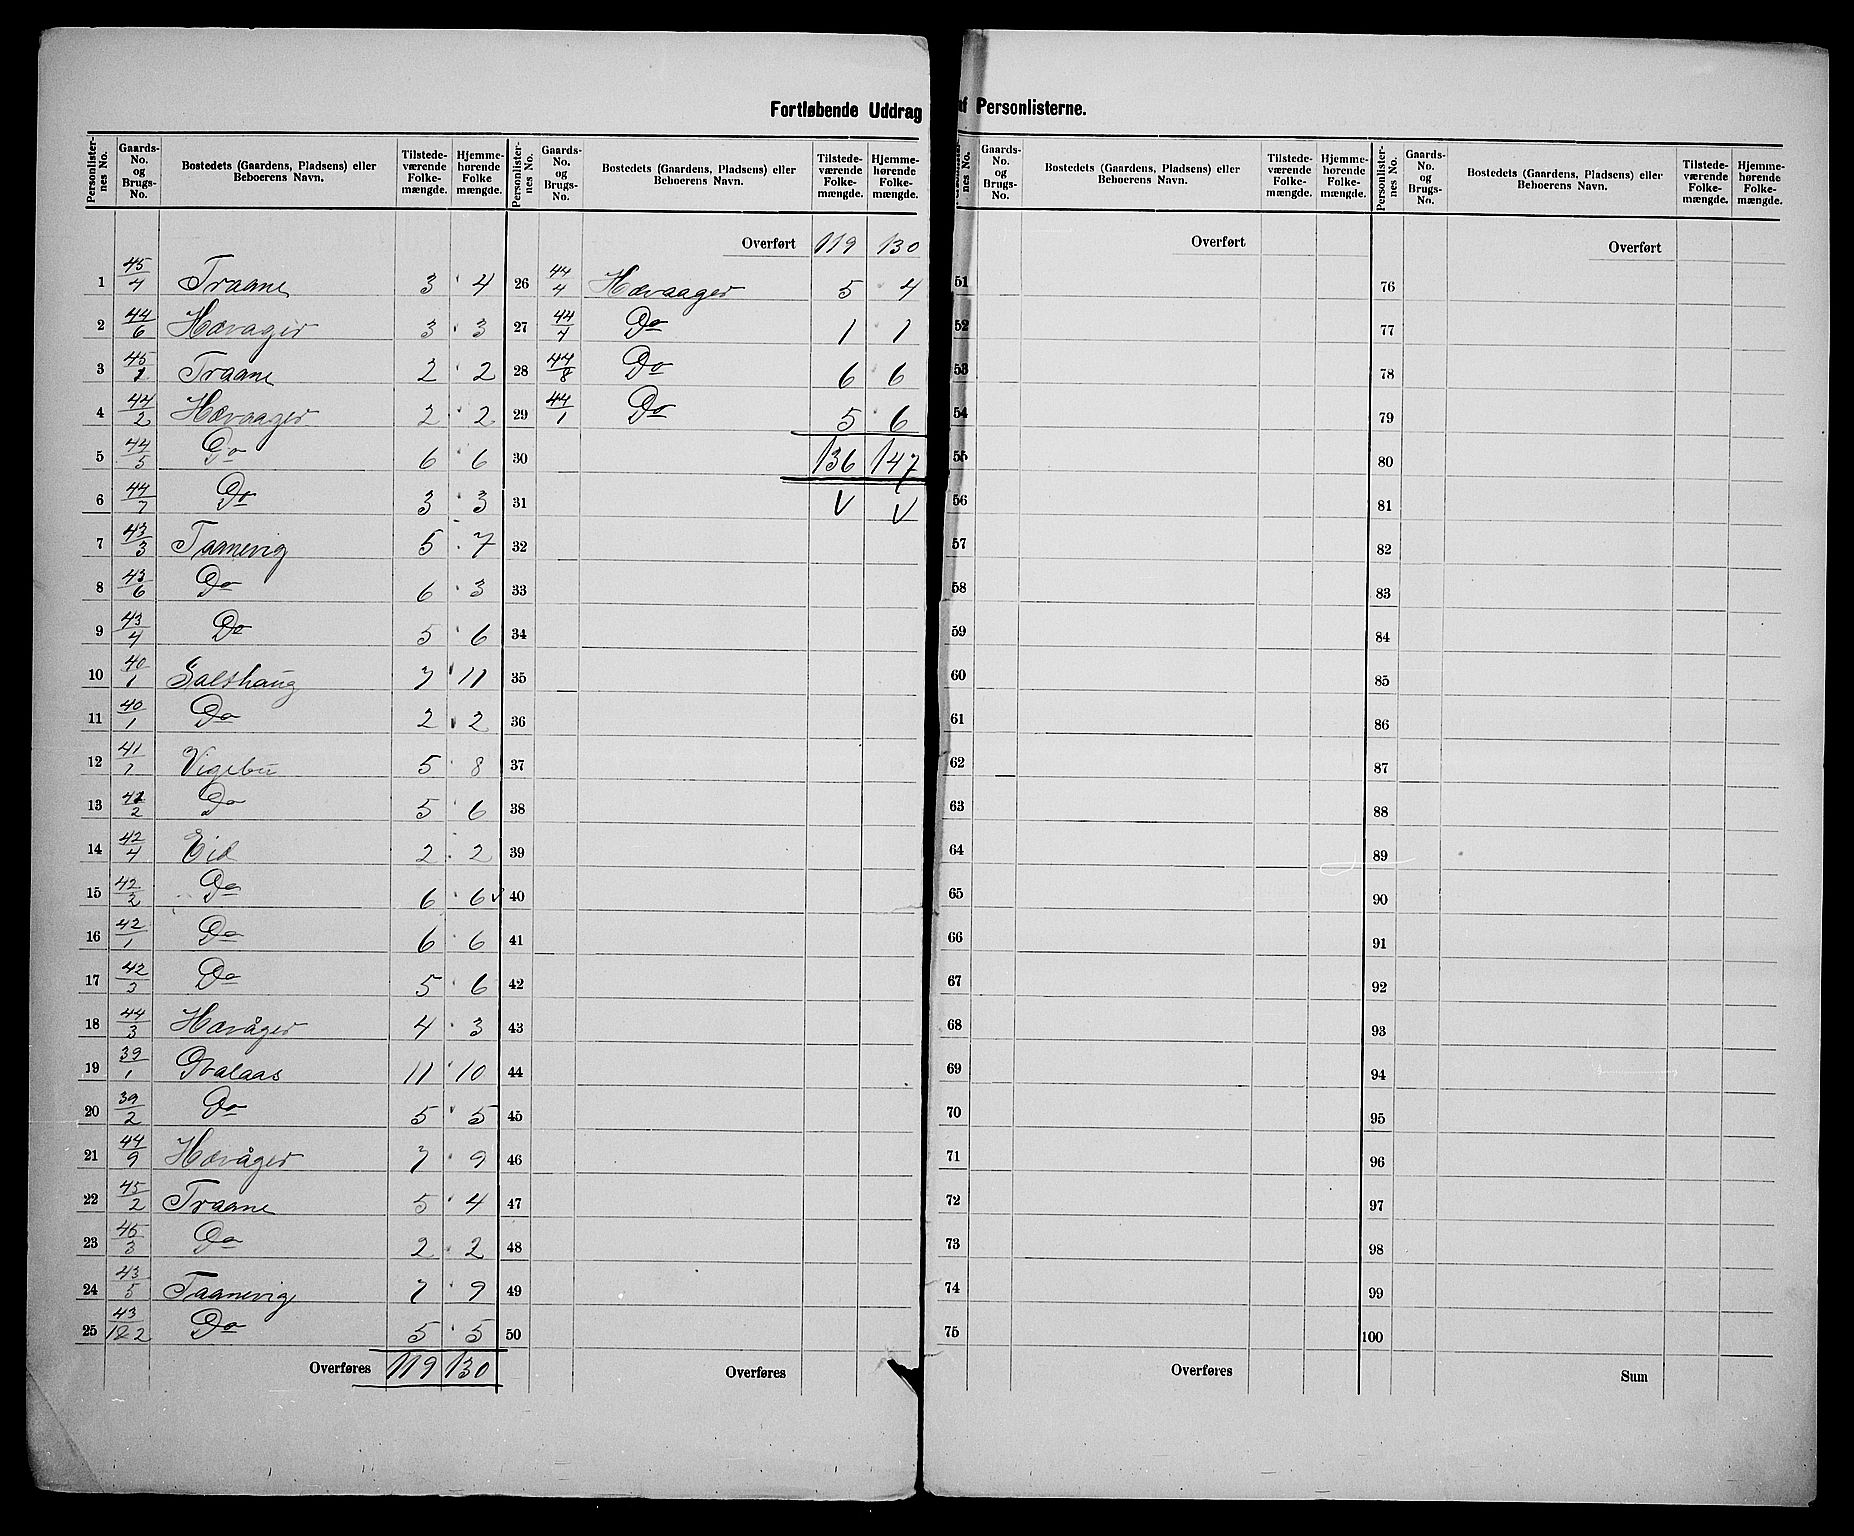 Fortløbende Uddrag af Personlisterne.
Personlister-nes No. | Gaards-No. og Brugs-No. | Bostedets (Gaardens, Pladsens) eller Beboerens Navn. | Tilstede-værende Folke-mængde. | Hjemme-hørende Folke mængde.
1 45/4 Traane 3 4
2 44/6 Hævager 3 3
3 45/1 Traane 2 2
4 44/2 Hævaager 2 2
5 44/5 Do 6 6
6 44/7 Do 3 3
7 43/3 Taanevig 5 7
8 43/6 Do 6 3
9 43/4 Do 5 6
10 40/1 Salthaug 7 11
11 40/1 Do 2 2
12 41/1 Vigebu 5 8
13 41/2 Do 5 6
14 42/4 Eid 2 2
15 42/2 Do 6 6
16 42/1 Do 6 6
17 42/3 Do 5 6
18 44/3 Hævåger 4 3
19 39/1 Svalaas 11 10
20 39/2 Do 5 5
21 44/9 Hævåger 7 9
22 45/2 Traane 5 4
23 45/3 Do 2 2
24 43/5 Taanevig 7 9
25 43/1&2 Do 5 5
Overføres 119 130
Personlister-nes No. | Gaards-No. og Brugs-No. | Bostedets (Gaardens, Pladsens) eller Beboerens Navn. | Tilstede-værende Folke-mængde. | Hjemme-hørende Folke-mængde.
Overført 119 130
26 44/4 Hævaager 5 4
27 44/7 Do 1 1
28 44/8 Do 6 6
29 44/1 Do 5 6
30 136 147
31 V V
32
33
34
35
36
37
38
39
40
41
42
43
44
45
46
47
48
49
50
Overføres
nes No. | Gaards-No. og Brugs-No. | Bostedets (Gaardens, Pladsens) eller Beboerens Navn. | Tilstede-værende Folke-mængde. | Hjemme-hørende Folke-mængde.
Overført
51
52
53
54
55
56
57
58
59
60
61
62
63
64
65
66
67
68
69
70
71
72
73
74
75
Overføres
Personlister-nes No. | Gaards-No. og Brugs-No. | Bostedets (Gaardens, Pladsens) eller Beboerens Navn. | Tilstede-værende Folke-mængde. | Hjemme-hørende Folke-mængde.
Overført
76
77
78
79
80
81
82
83
84
85
86
87
88
89
90
91
92
93
94
95
96
97
98
99
100
Sum